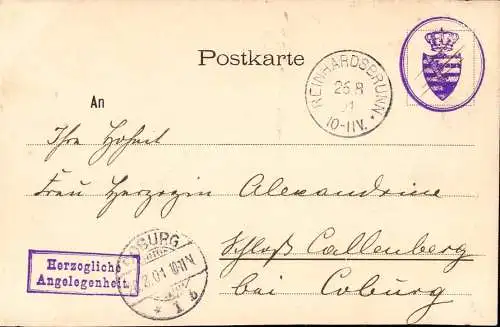 Postkarte
REINHARDSBRUNN
26.8
01
10-11V.
An
Ihre Hoheit
Frau Herzogin Alexandrine
Schloß Callenberg
bei Coburg
COBURG
8.01 10-11N
* 1 b
Herzogliche
Angelegenheit.